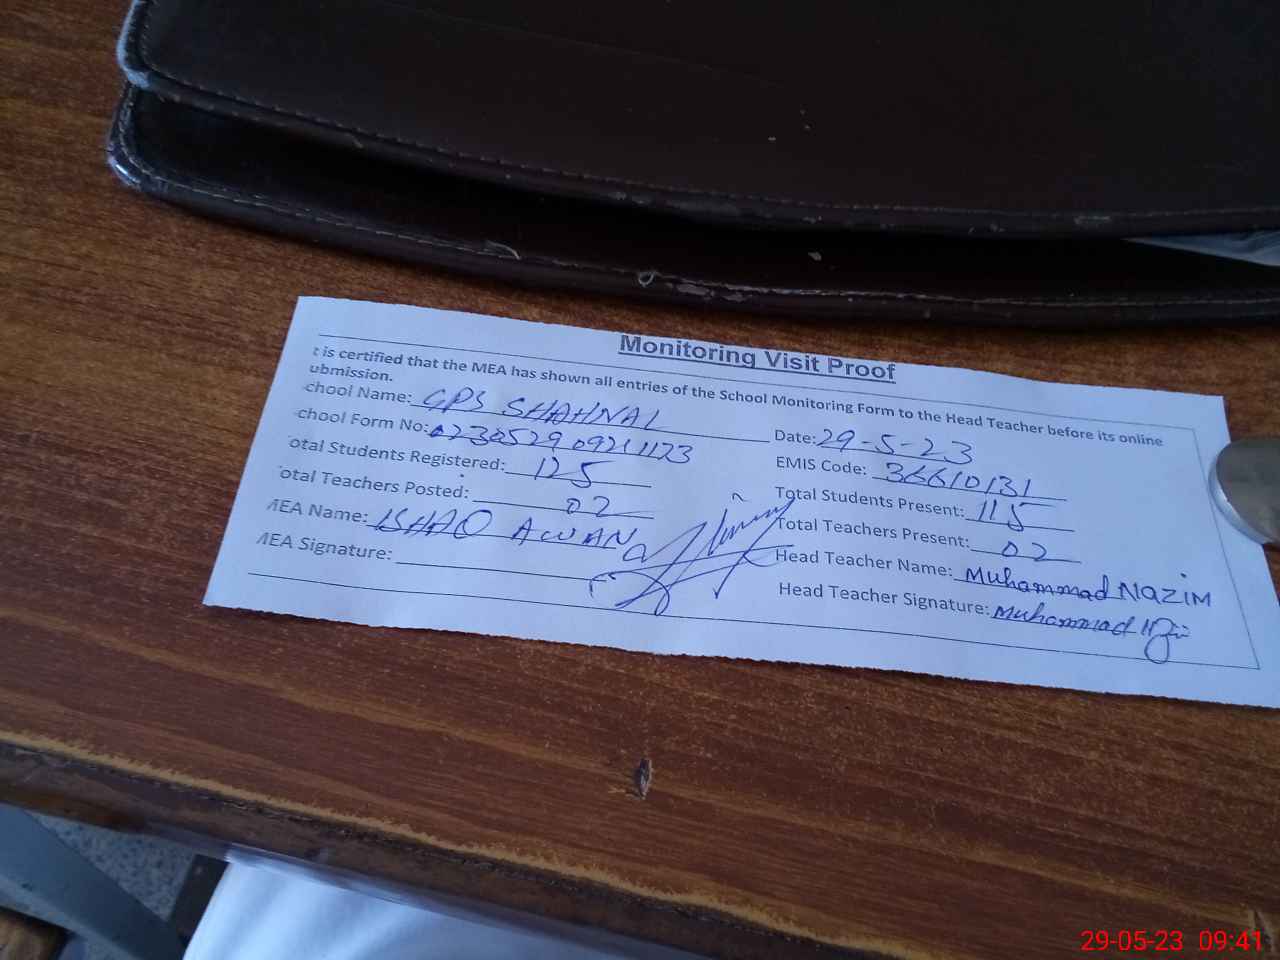 Monitoring Visit Proof
t is certified that the MEA has shown all entries of the School Monitoring Form to the Head Teacher before its online
ubmission.
chool Name: GPS SHAHNAL Date: 29-5-23
chool Form No: 023052909211123 EMIS Code: 36610131
otal Students Registered: 125 Total Students Present: 115
otal Teachers Posted: 02 Total Teachers Present: 02
MEA Name: ISHAQ AWAN Head Teacher Name: Muhammad NAZIM
MEA Signature: Head Teacher Signature: Muhammad
29-05-23 09:41